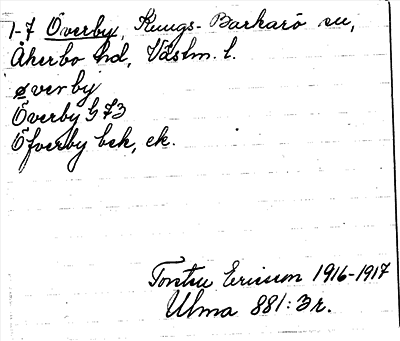 1-7 Överby, Kungs-Barkarö sn,
Åkerbo hd, Västm. l.
øverby
Överby G 73
Öfverby bek, ek.
Torsten Ericsson 1916-1917
Ulma 881:3 r.